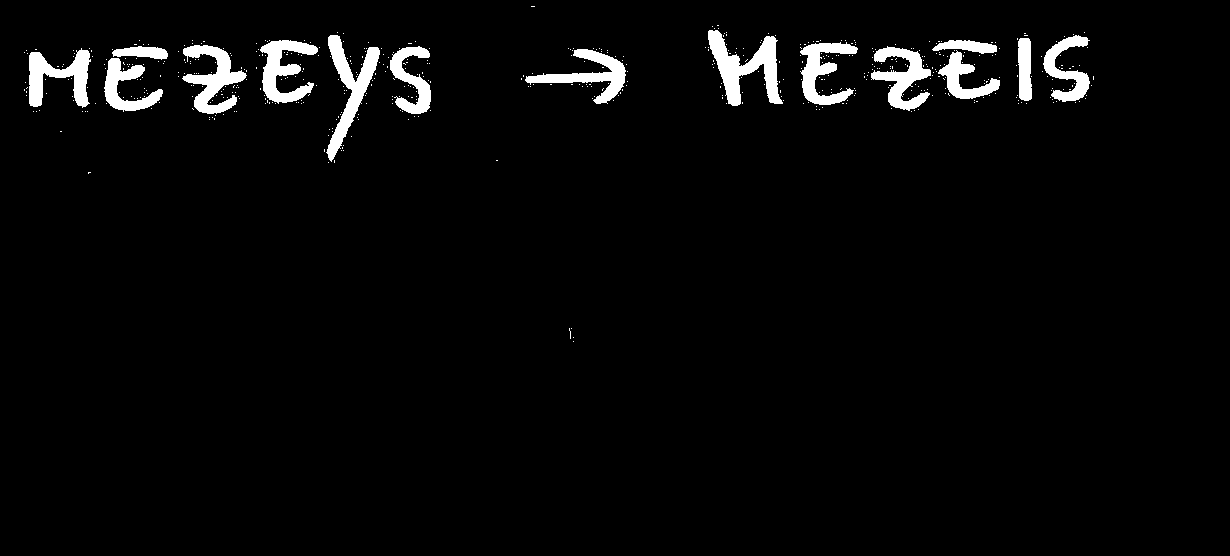 MEZEYS → MEZEIS